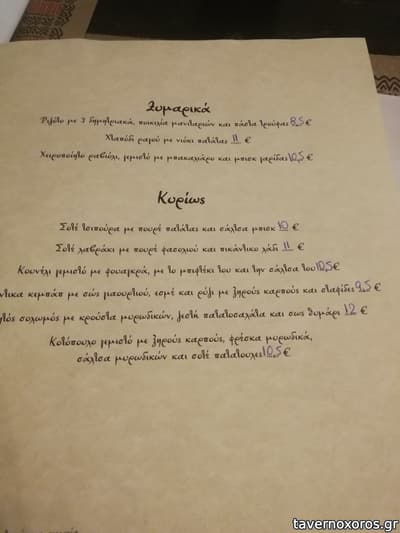 Ζυμαρικά
Ριζότο με 3 δημητριακά, ποικιλία μανιταριών και πάστα τρούφας 8,5 €
Χταπόδι ραγού με νιόκι πατάτας 11 €
Χειροποίητο ραβιόλι, γεμιστό με μπακαλιάρο και μπισκ γαρίδας 10,5 €
Κυρίως
Σοτέ τσιπούρα με πουρέ πατάτας και σάλτσα μπισκ 10 €
Σοτέ λαβράκι με πουρέ φασολιού και πικάντικο λάδι 11 €
Κουνέλι γεμιστό με φουαγκρά, με το μπιφτέκι του και την σάλτσα του 10,5 €
κεμπάπ με σως γιαουρτιού, εσμέ και ρύζι με ξηρούς καρπούς και σταφίδες 9,5
σολωμός με κρούστα μυρωδικών, ζεστή πατατοσαλάτα και σως θυμάρι 12 €
Κοτόπουλο γεμιστό με ξηρούς καρπούς, φρέσκα μυρωδικά,
σάλτσα μυρωδικών και σοτέ πατατούλες 10,5 €
tavernoxoros.gr